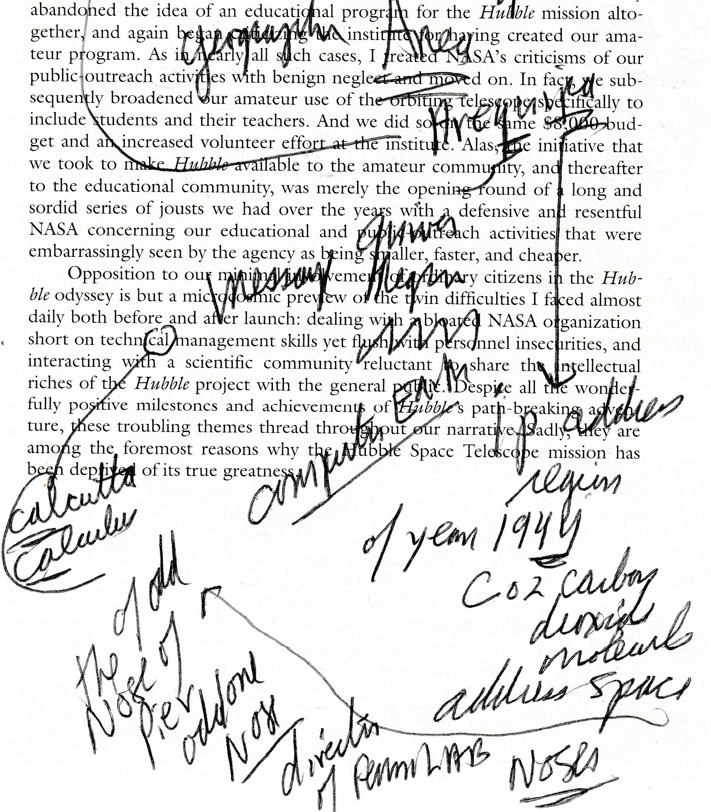 abandoned the idea of an educational program for the Hubble mission alto-
gether, and again began institute for having created our ama-
teur program. As in nearly all such cases, I treated NASA's criticisms of our
public-outreach activities with benign neglect and moved on. In fact, we sub-
sequently broadened our amateur use of the orbiting telescope specifically to
include students and their teachers. And we did so on the same $8,000 bud-
get and an increased volunteer effort at the institute. Alas, the initiative that
we took to make Hubble available to the amateur community, and thereafter
to the educational community, was merely the opening round of a long and
sordid series of jousts we had over the years with a defensive and resentful
NASA concerning our educational and public-outreach activities that were
embarrassingly seen by the agency as being smaller, faster, and cheaper.
Opposition to our minimal involvement of ordinary citizens in the Hub-
ble odyssey is but a microcosmic preview of the twin difficulties I faced almost
daily both before and after launch: dealing with a bloated NASA organization
short on technical management skills yet flush with personnel insecurities, and
interacting with a scientific community reluctant to share the intellectual
riches of the Hubble project with the general public. Despite all the wonder-
fully positive milestones and achievements of Hubble's path-breaking adven-
ture, these troubling themes thread throughout our narrative. Sadly, they are
among the foremost reasons why the Hubble Space Telescope mission has
been deprived of its true greatness.
Area
message
computer Earth
ip address
region
of year 1944
Calcutta
Calculus
CO2 carbon
dioxide
molecule
address space
of odd
the
Nose of
Pier
oddone
Nose
director
of FermiLAB
Noses